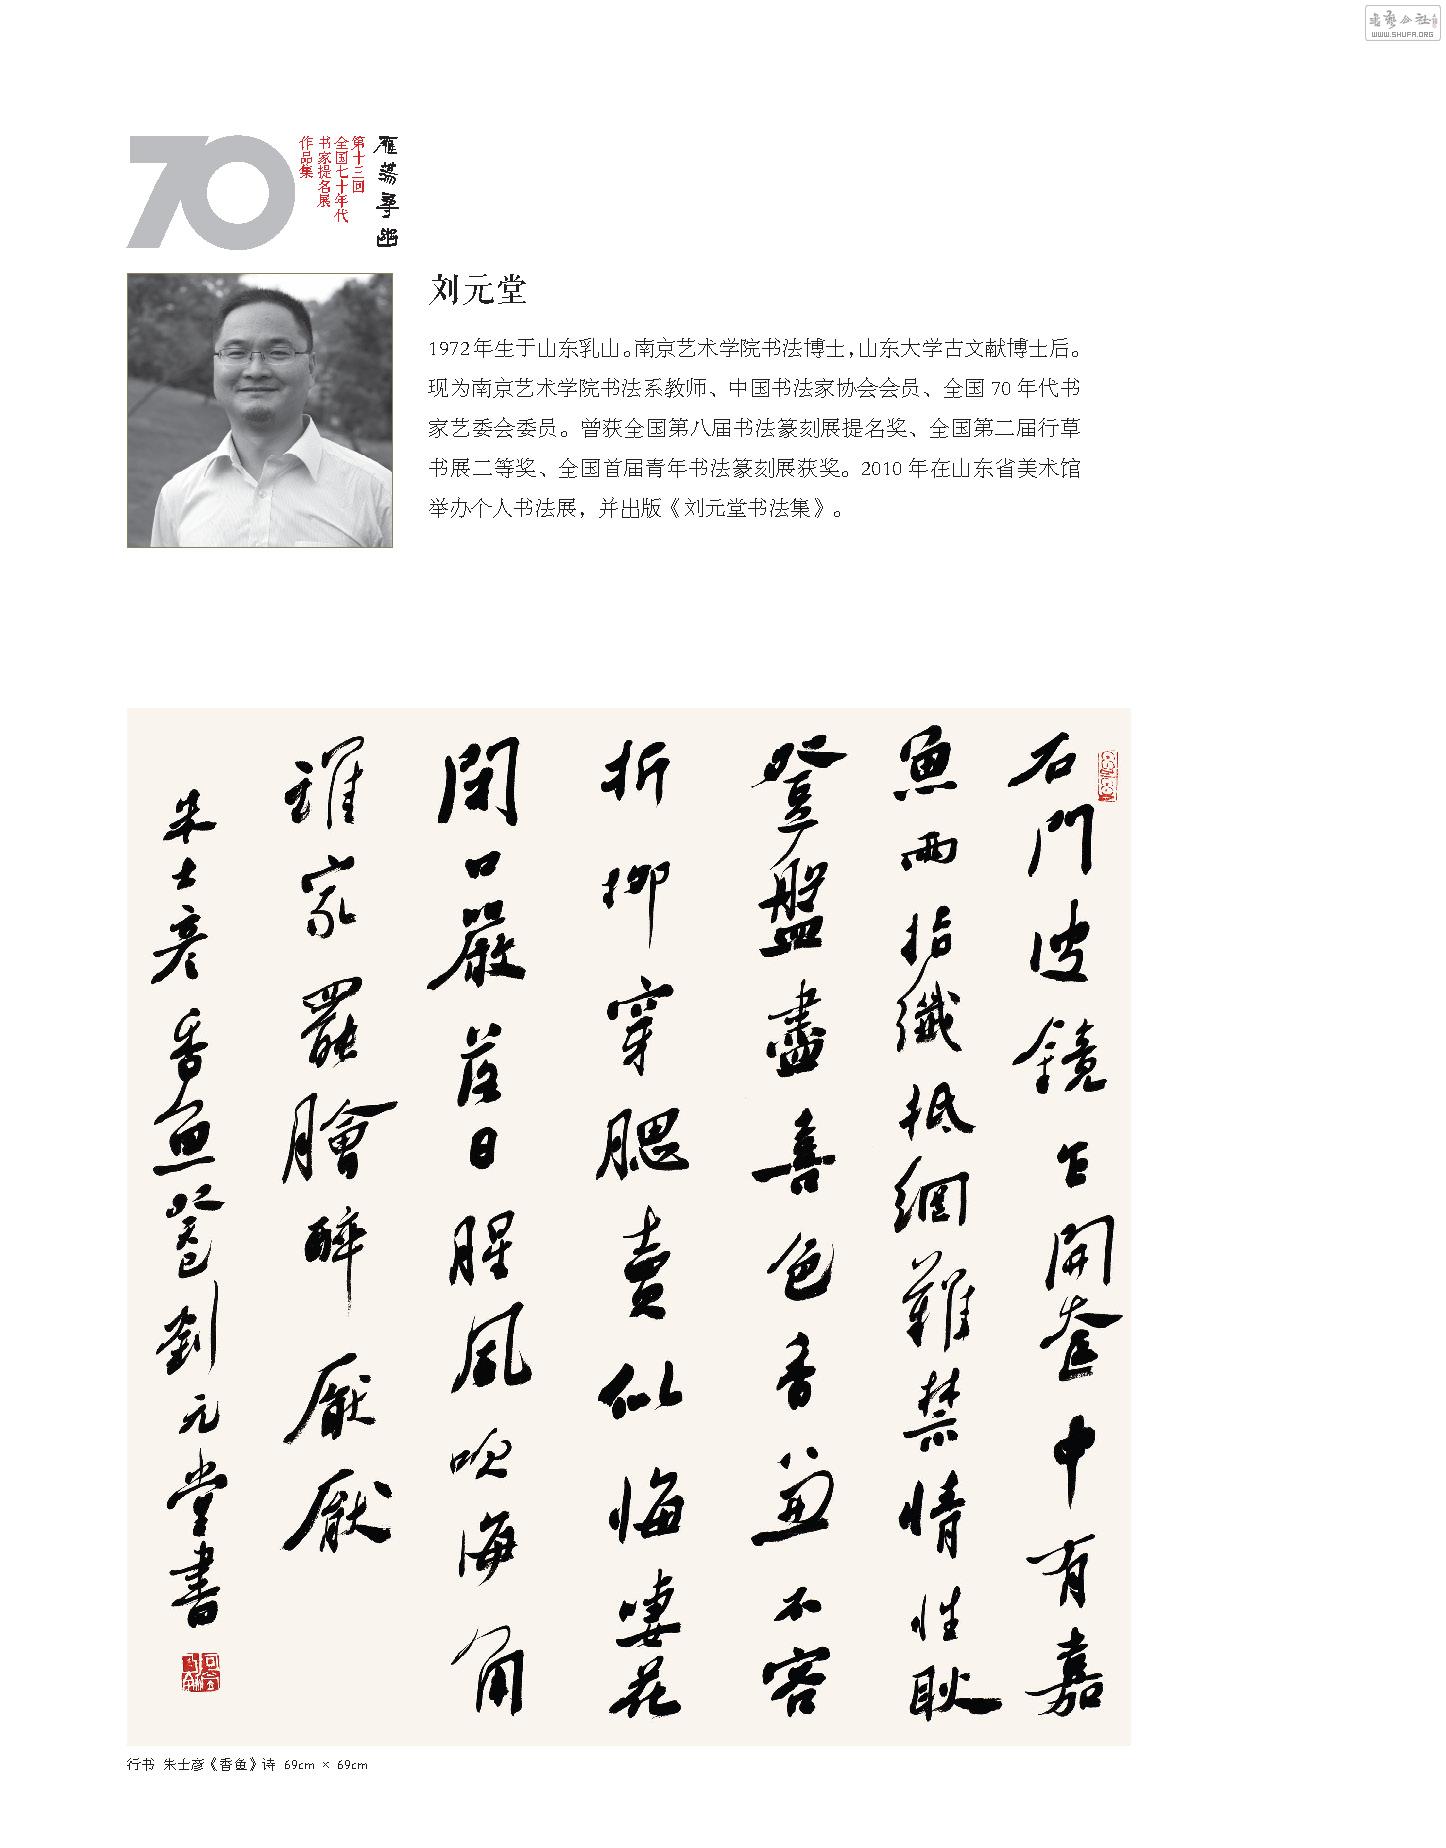 书艺公社
WWW.SHUFA.ORG
70
雁荡寻幽
第十三回
全国七十年代
书家提名展
作品集
刘元堂
1972年生于山东乳山。南京艺术学院书法博士，山东大学古文献博士后。
现为南京艺术学院书法系教师、中国书法家协会会员、全国 70 年代书
家艺委会委员。曾获全国第八届书法篆刻展提名奖、全国第二届行草
书展二等奖、全国首届青年书法篆刻展获奖。2010 年在山东省美术馆
举办个人书法展，并出版《刘元堂书法集》。
石門波鏡乍開奩中有嘉
魚兩指纖抵網難禁情性耿
登盤盡喜色香兼不容
折柳穿腮賣似悔唼花
閉口嚴落日腥風吹海角
誰家罷膾醉厭厭
朱士彦香魚癸巳劉元堂書
行书 朱士彦《香鱼》诗 69cm × 69cm